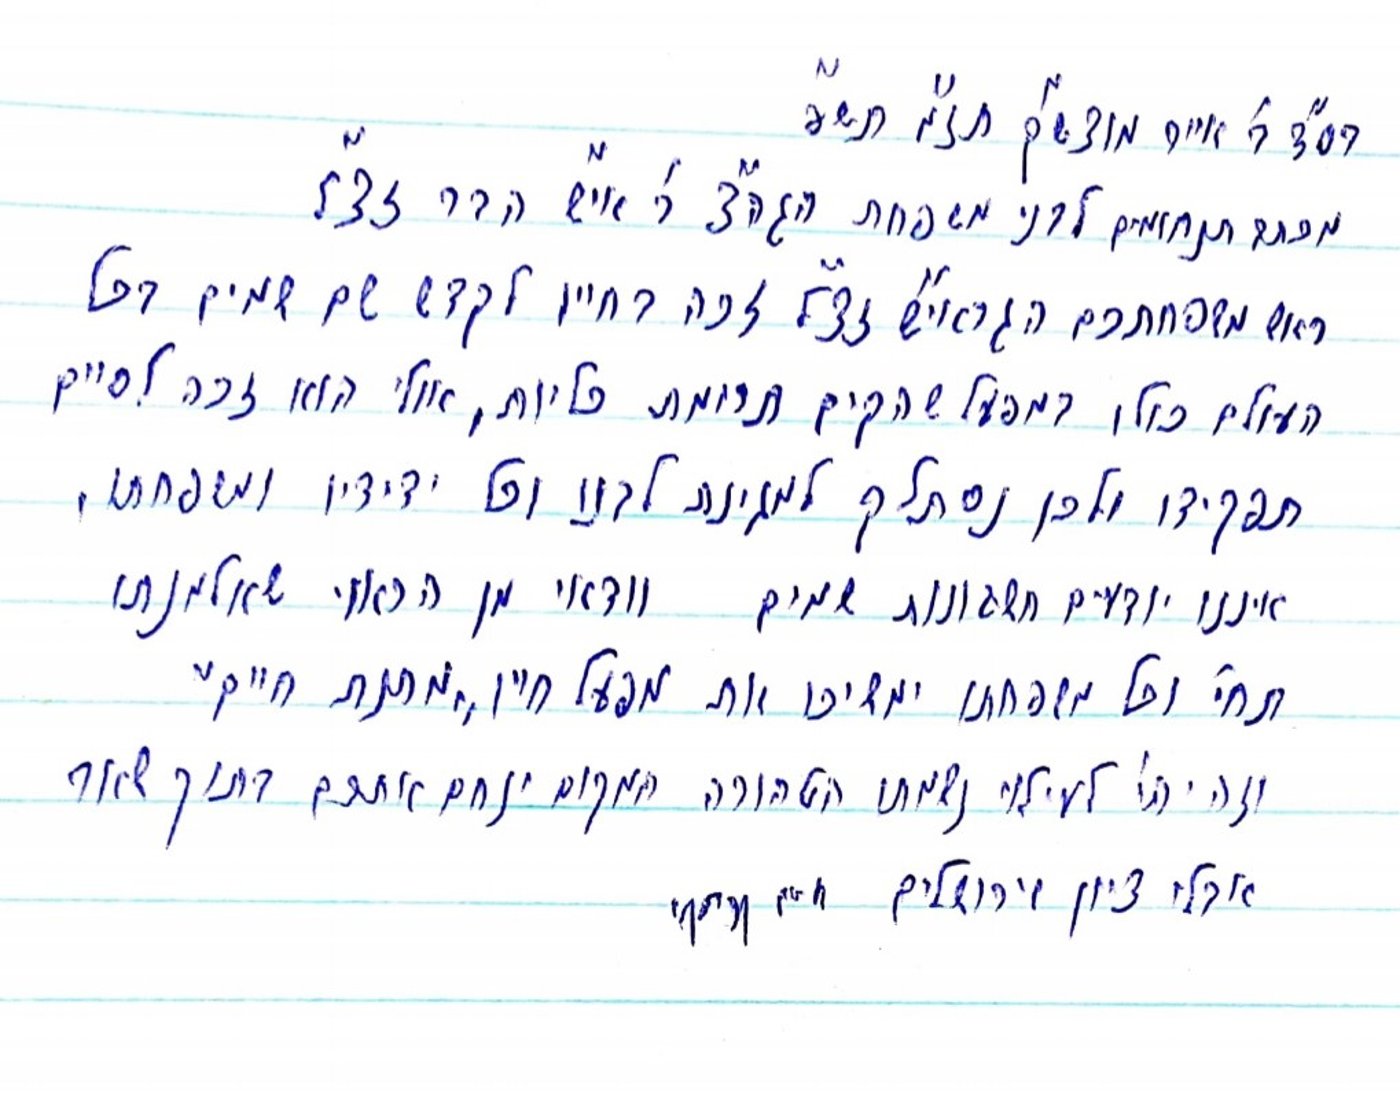 בס"ד ב' אייר מוצש"ק תזו"מ תש"פ
מכתב תנחומים לבני משפחת הגה"צ ר' אי"ש הבר זצ"ל
ראש משפחתכם הגראי"ש זצ"ל זכה בחייו לקדש שם שמים בכל
העולם כולו במפעל שהקים תרומת כליות, אולי הוא זכה לסיים
תפקידו ולכן נסתלק למגינת לבנו וכל ידידיו ומשפחתו,
איננו יודעים חשבונות שמים וודאי מן הראוי שאלמנתו
תחי' וכל משפחתו ימשיכו את מפעל חייו "מתנת חיים"
וזה יהי' לעילוי נשמתו הטהורה המקום ינחם אתכם בתוך שאר
אבלי ציון וירושלים חיים קניבסקי